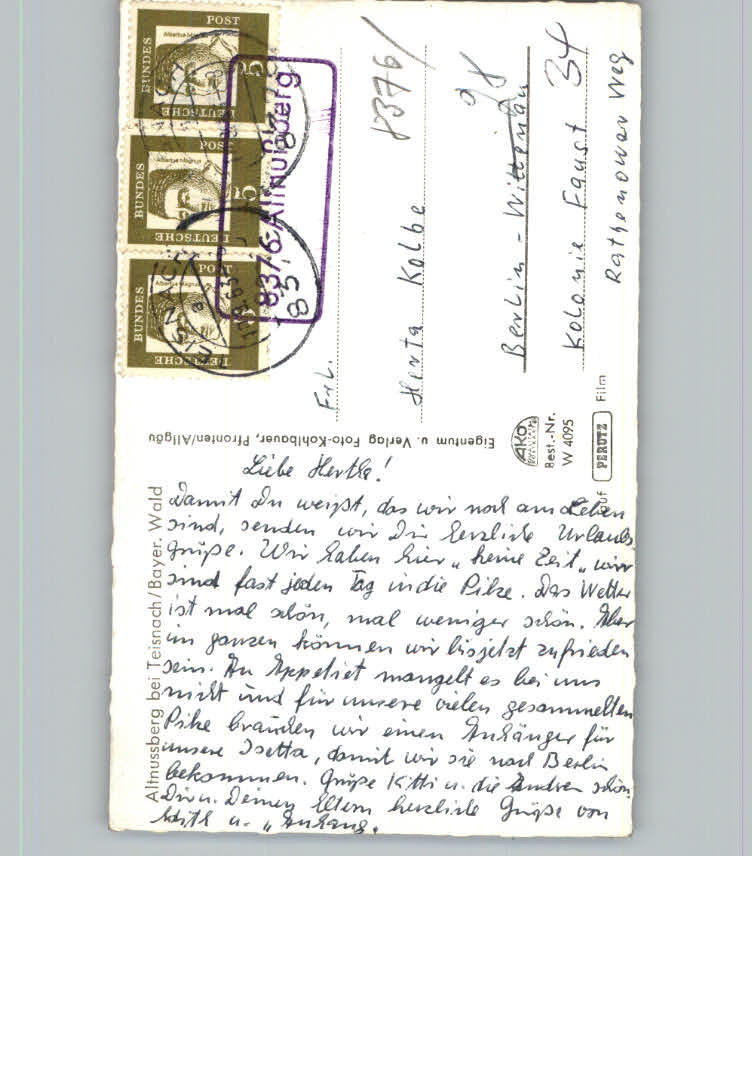 Liebe Hertha!
Damit Du weißt, das wir noch am Leben
sind, senden wir Dir herzliche Urlaubs
grüße. Wir haben hier „keine Zeit„ wir
sind fast jeden Tag in die Pilze. Das Wetter
ist mal schön, mal weniger schön. Aber
im ganzen können wir bisjetzt zufrieden
sein. An Appetiet mangelt es bei uns
nicht und für unsere vielen gesammelten
Pilze brauchen wir einen Anhänger für
unsere Isetta, damit wir sie nach Berlin
bekommen. Grüße Kitti u. die Andren schön.
Dir u. Deinen Eltern herzliche Grüße von
u. „Anhang„
Altnussberg bei Teisnach/Bayer. Wald
Eigentum u. Verlag Foto-Kohlbauer, Pfronten/Allgäu
AKO
Best.-Nr.
W 4095
auf PERUTZ Film
Frl.
Herta Kolbe
Berlin - Wittenau
Kolonie Faust 34
Rathenower Weg
8376/
8376 Altnußberg
TEISNACH
a
63
DEUTSCHE BUNDESPOST
Albertus Magnus
5
DEUTSCHE BUNDESPOST
Albertus Magnus
5
DEUTSCHE BUNDESPOST
Albertus Magnus